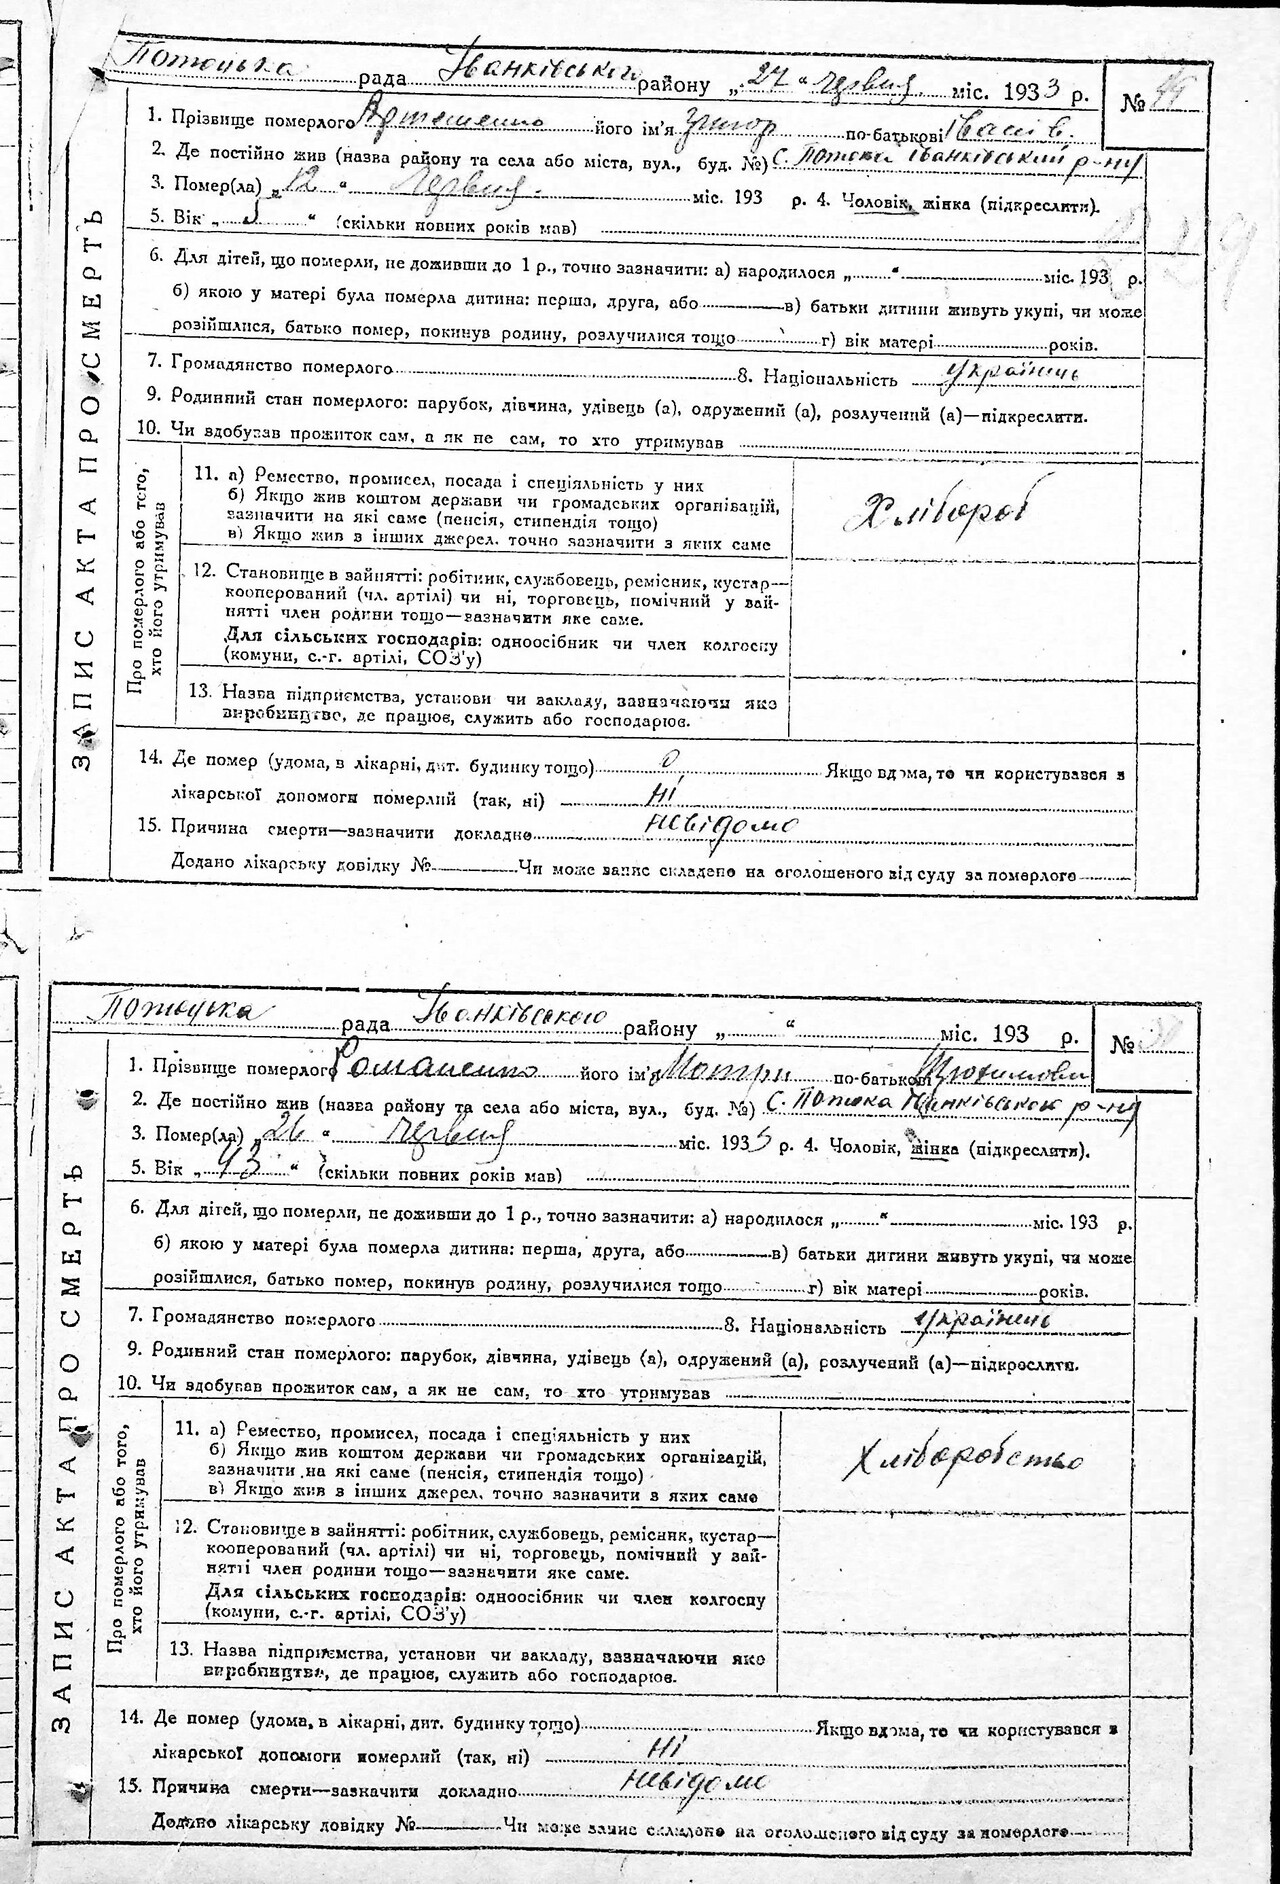 Потоцька рада Іванківського району „ 27 “ червня міс. 1933 р. №
1. Прізвище померлого Артеменко його ім'я Григор по-батькові Іванів.
2. Де постійно жив (назва району та села або міста, вул., буд. №) С. Потоки Іванківський р-ну
3. Помер(ла) „ 12 “ червня. міс. 193 р. 4. Чоловік, жінка (підкреслити).
5. Вік „ 3 “ (скільки повних років мав)
6. Для дітей, що померли, не доживши до 1 р., точно зазначити: а) народилося „ “ міс. 193 р.
б) якою у матері була померла дитина: перша, друга, або в) батьки дитини живуть укупі, чи може
розійшлися, батько помер, покинув родину, розлучилися тощо г) вік матері років.
7. Громадянство померлого 8. Національність українець
9. Родинний стан померлого: парубок, дівчина, удівець (а), одружений (а), розлучений (а)—підкреслити.
10. Чи здобував прожиток сам, а як не сам, то хто утримував
ЗАПИС АКТА ПРО СМЕРТЬ
Про померлого або того,
хто його утримував
11. а) Ремество, промисел, посада і спеціяльність у них
б) Якщо жив коштом держави чи громадських організацій,
зазначити на які саме (пенсія, стипендія тощо)
в) Якщо жив з інших джерел, точно зазначити з яких саме
Хлібороб
12. Становище в зайнятті: робітник, службовець, ремісник, кустар—
кооперований (чл. артілі) чи ні, торговець, помічний у зай-
нятті член родини тощо—зазначити яке саме.
Для сільських господарів: одноосібник чи член колгоспу
(комуни, с.-г. артілі, СОЗ'у)
13. Назва підприємства, установи чи закладу, зазначаючи яке
виробництво, де працює, служить або господарює.
14. Де помер (удома, в лікарні, дит. будинку тощо) Якщо вдома, то чи користувався з
лікарської допомоги померлий (так, ні) ні
15. Причина смерти—зазначити докладно невідомо
Додано лікарську довідку № Чи може запис складено на оголошеного від суду за померлого
Потоцька рада Іванківського району „ “ міс. 193 р. №
1. Прізвище померлого Романенко його ім'я Мотри по-батькові
2. Де постійно жив (назва району та села або міста, вул., буд. №) С. Потока Іванківського р-ну
3. Помер(ла) „ 26 “ червня міс. 1933 р. 4. Чоловік, жінка (підкреслити).
5. Вік „ 43 “ (скільки повних років мав)
6. Для дітей, що померли, не доживши до 1 р., точно зазначити: а) народилося „ “ міс. 193 р.
б) якою у матері була померла дитина: перша, друга, або в) батьки дитини живуть укупі, чи може
розійшлися, батько помер, покинув родину, розлучилися тощо г) вік матері років.
7. Громадянство померлого 8. Національність українець
9. Родинний стан померлого: парубок, дівчина, удівець (а), одружений (а), розлучений (а)—підкреслити.
10. Чи здобував прожиток сам, а як не сам, то хто утримував
ЗАПИС АКТА ПРО СМЕРТЬ
Про померлого або того,
хто його утримував
11. а) Ремество, промисел, посада і спеціяльність у них
б) Якщо жив коштом держави чи громадських організацій,
зазначити на які саме (пенсія, стипендія тощо)
в) Якщо жив з інших джерел, точно зазначити з яких саме
Хліборобство
12. Становище в зайнятті: робітник, службовець, ремісник, кустар—
кооперований (чл. артілі) чи ні, торговець, помічний у зай-
нятті член родини тощо—зазначити яке саме.
Для сільських господарів: одноосібник чи член колгоспу
(комуни, с.-г. артілі, СОЗ'у)
13. Назва підприємства, установи чи закладу, зазначаючи яке
виробництво, де працює, служить або господарює.
14. Де помер (удома, в лікарні, дит. будинку тощо) Якщо вдома, то чи користувався з
лікарської допомоги померлий (так, ні) ні
15. Причина смерти—зазначити докладно невідомо
Додано лікарську довідку № Чи може запис складено на оголошеного від суду за померлого